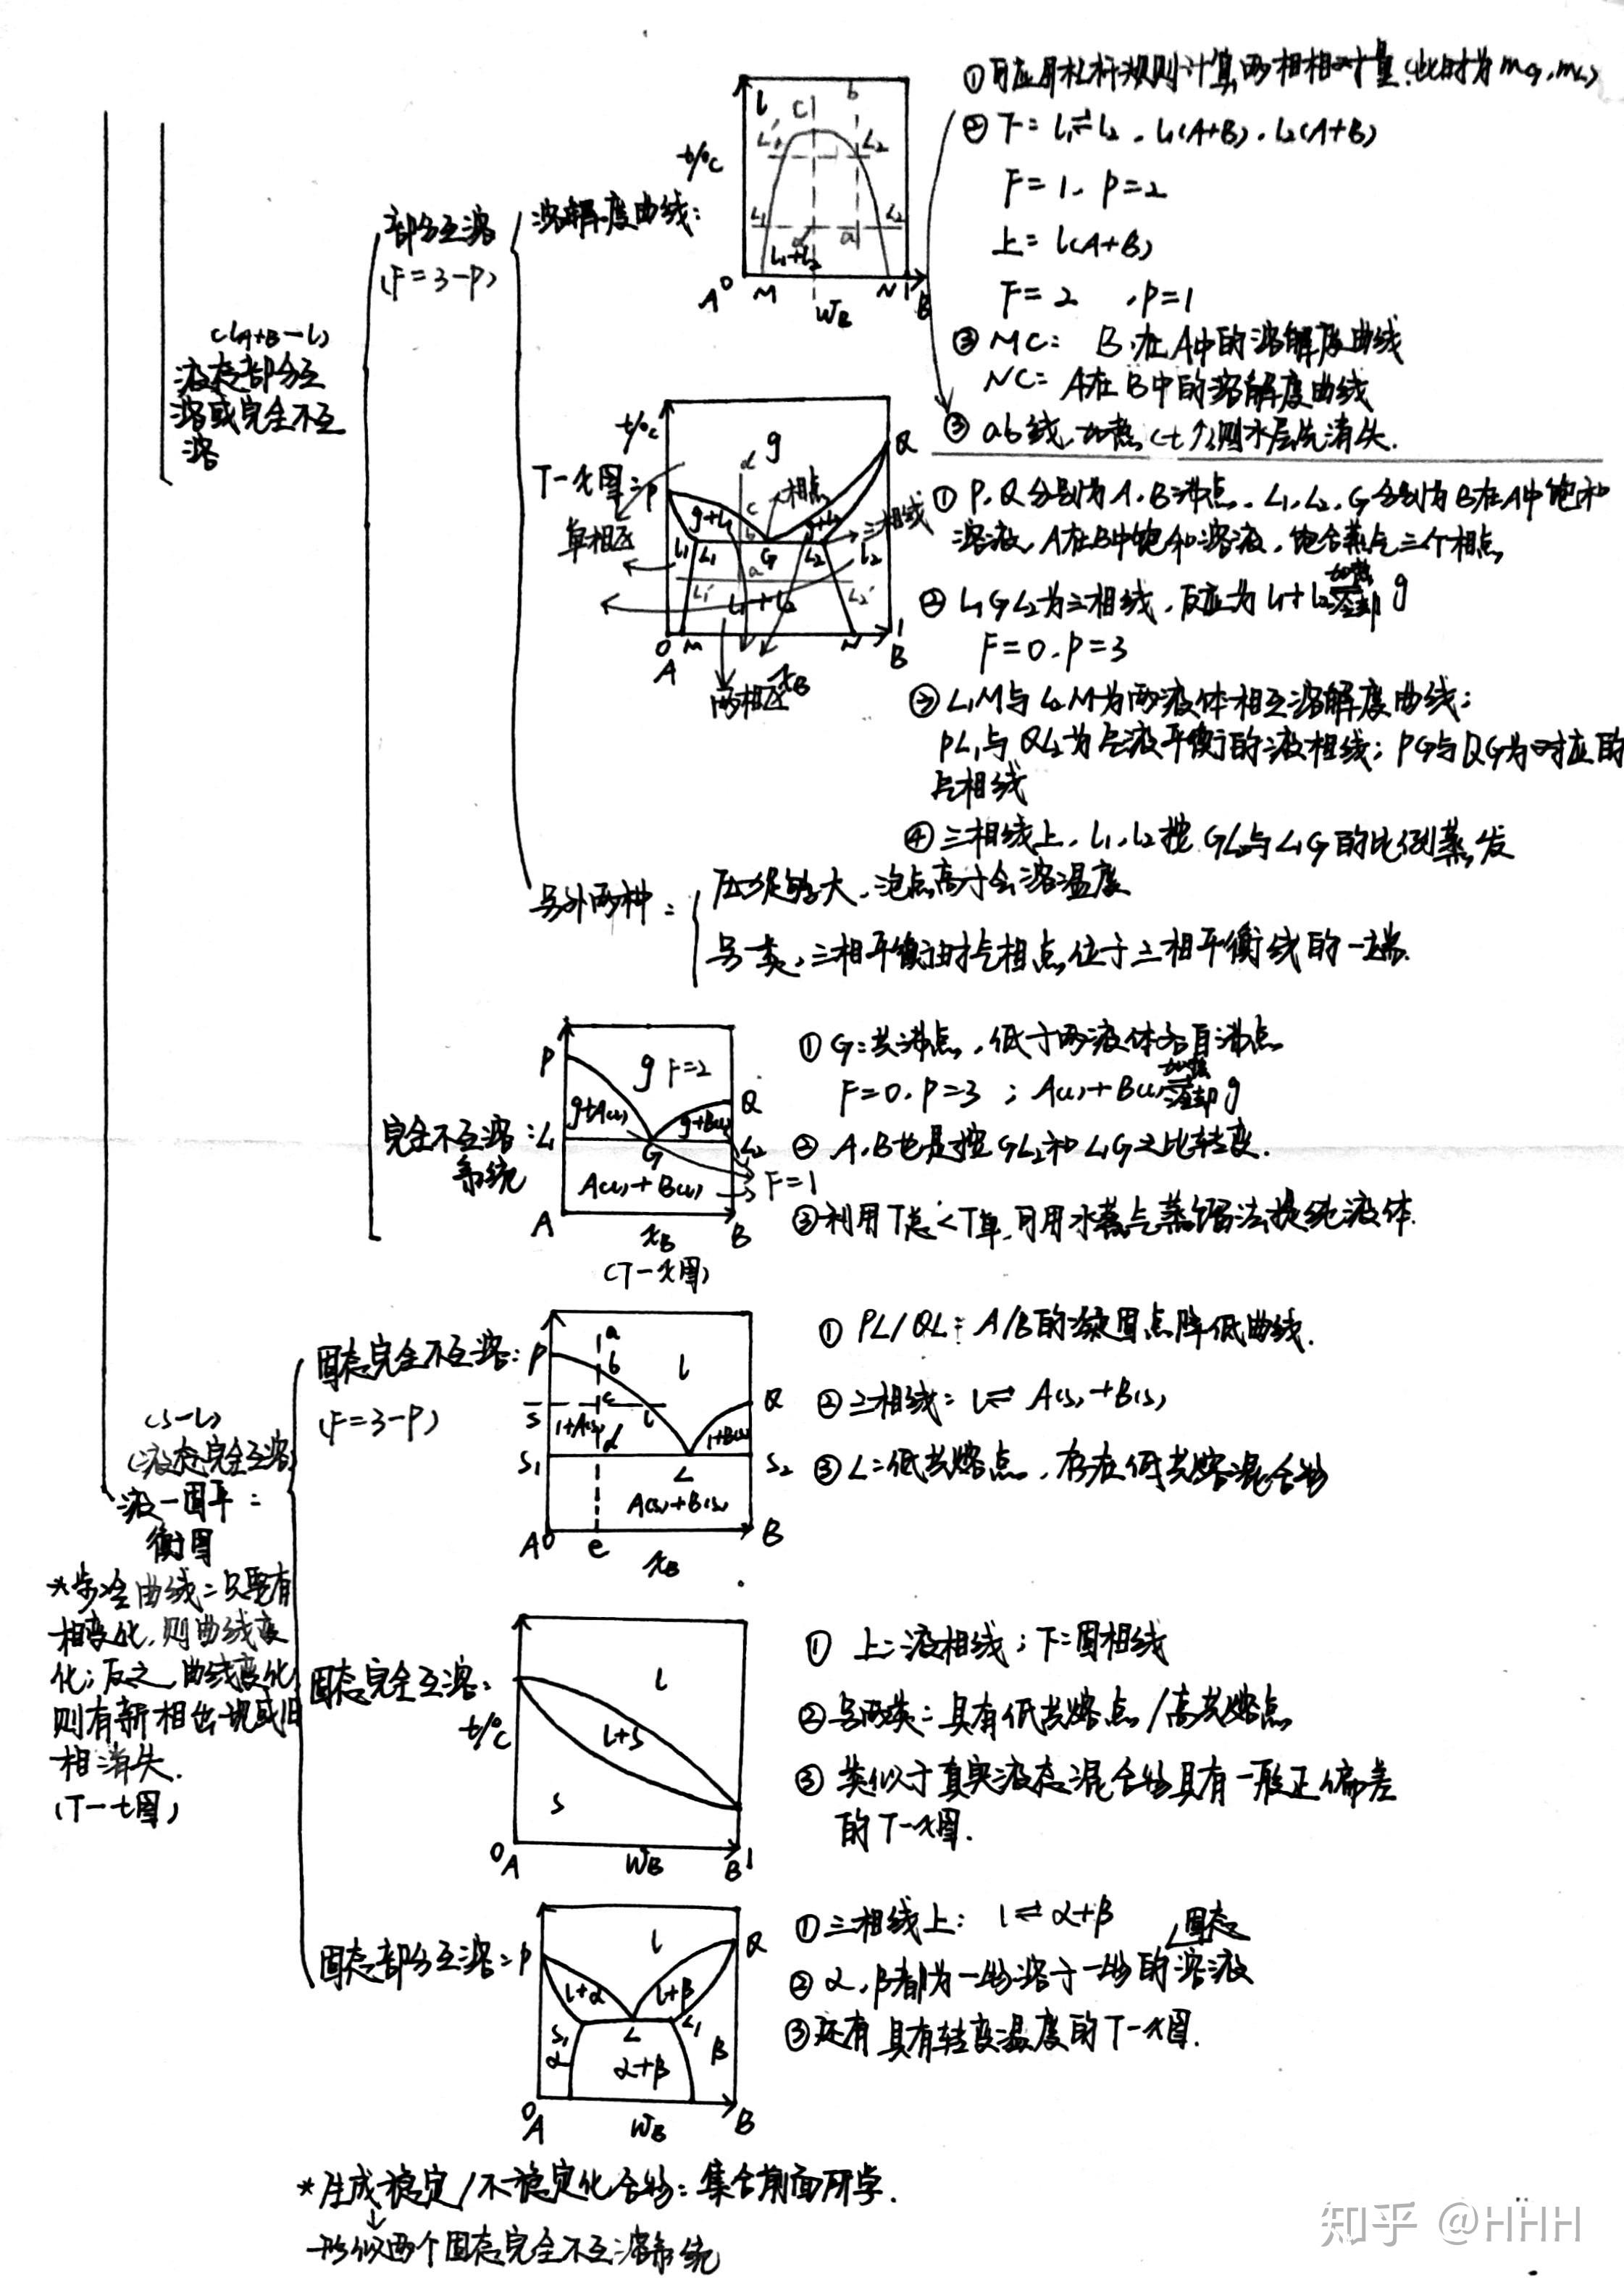 ①可应用杠杆规则计算两相相对量(此时为mG,mL)
②下=l₁⇌l₂,l₁(A+B),l₂(A+B)
F=1,P=2
上=l(A+B)
F=2,P=1
③MC: B在A中的溶解度曲线
NC=A在B中的溶解度曲线
③ab线,加热(t↑)则水层先消失.
溶解度曲线:
t/℃
l
C
b
L₁'
L₂'
L₁
L₂
d
a
l₁+l₂
A
0
M
N
1
B
WB
部分互溶
(F=3-P)
(l(A+B-l)
液态部分互
溶或完全不互
溶
T-x图:
t/℃
g
P
Q
d
相点
三相线
单相区
g+l₁
g+l₂
c
b
l₁
L₁
G
L₂
l₂
a
L₁'
L₂'
l₁+l₂
0
A
M
N
1
B
xB
两相区
①P,Q分别为A,B沸点,L₁,L₂,G分别为B在A中饱和
溶液,A在B中饱和溶液,饱合蒸气三个相点
②L₁GL₂为三相线,反应为l₁+l₂ 加热 冷却 g
F=0,P=3
③L₁M与L₂M为两液体相互溶解度曲线;
PL₁与QL₂为气液平衡的液相线;PG与QG为对应的
气相线
④三相线上,l₁,l₂按GL₂与L₁G的比例蒸发
另外两种:
压力足够大,泡点高于会溶温度
另一类,三相平衡时气相点位于三相平衡线的一端.
完全不互溶
系统
:
P
g F=2
Q
g+A(l)
g+B(l)
L₁
G
L₂
A(l)+B(l)
F=1
A
xB
B
(T-x图)
①G:共沸点,低于两液体各自沸点
F=0,P=3;A(l)+B(l) 加热 冷却 g
②A,B也是按GL₂和L₁G之比转变.
③利用T总<T单,可用水蒸气蒸馏法提纯液体.
固态完全不互溶:
(F=3-P)
P
a
b
l
Q
S
c
l
l+A(s)
d
l+B(s)
S₁
L
S₂
A(s)+B(s)
A
0
e
xB
B
①PL/QL:A/B的凝固点降低曲线.
②三相线:l⇌A(s)+B(s)
③L=低共熔点,存在低共熔混合物
(s-l)
(液态完全互溶)
液-固平
衡图
:
*步冷曲线=只要有
相变化,则曲线变
化;反之,曲线变化
则有新相出现或旧
相消失.
(T-t图)
固态完全互溶:
t/℃
l
l+s
s
0
A
WB
B
1
①上=液相线;下=固相线
②另两类:具有低共熔点/高共熔点
③类似于真实液态混合物具有一般正偏差
的T-x图.
固态部分互溶=
P
l
Q
l+α
l+β
S₁
L
L₁
α
α+β
β
0
A
WB
B
①三相线上:l⇌α+β
固态
②α,β都为一物溶于一物的溶液
③还有具有转变温度的T-x图.
*生成稳定/不稳定化合物:集合前面所学.
↓
形似两个固态完全不互溶系统
知乎 @HHH